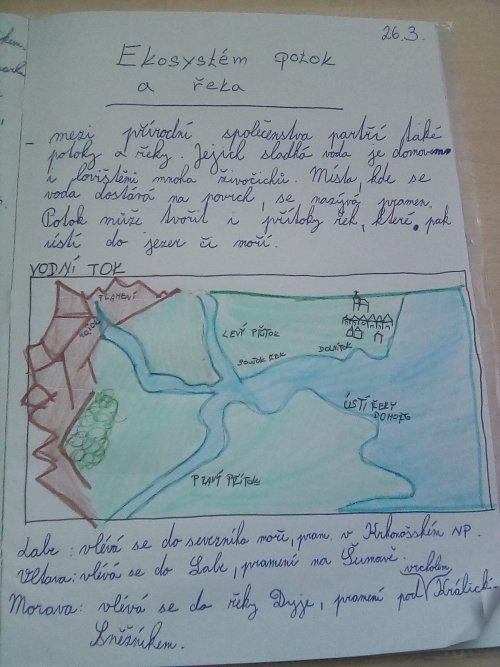 26.3.
Ekosystém potok
a řeka
- mezi přírodní společenstva partří také
potoky a řeky. Jejich sladká voda je domovem
i lovištěmi mnoha živočichů. Místa, kde se
voda dostává na povrch, se nazývá pramen.
Potok může tvořit i přítoky řek, které pak
ústí do jezer či moří.
VODNÍ TOK
PRAMENÍ
POTOK
LEVÝ PŘÍTOK
SOUTOK ŘEK
DOLNÍ TOK
ÚSTÍ ŘEKY
DO MOŘE
PRAVÝ PŘÍTOK
Labe: vlévá se do severního moře, pram. v Krkonošském NP.
Vltava: vlévá se do Labe, pramení na Šumavě.
vrcholem
Morava: vlévá se do řeky Dyje, pramení pod Králick.
Sněžníkem.